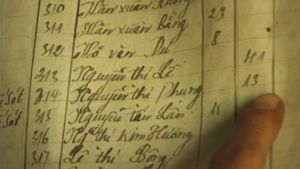 310 Văn Xuân
311 Văn Xuân Bằng 23
312 Võ Văn Du 8
313 Nguyễn thị Lề 41
Sót 314 Nguyễn thị Nhung 13
Sót 315 Nguyễn tấn Lân 15
316 Ng thị Kim Hương
317 Lê thị Bông